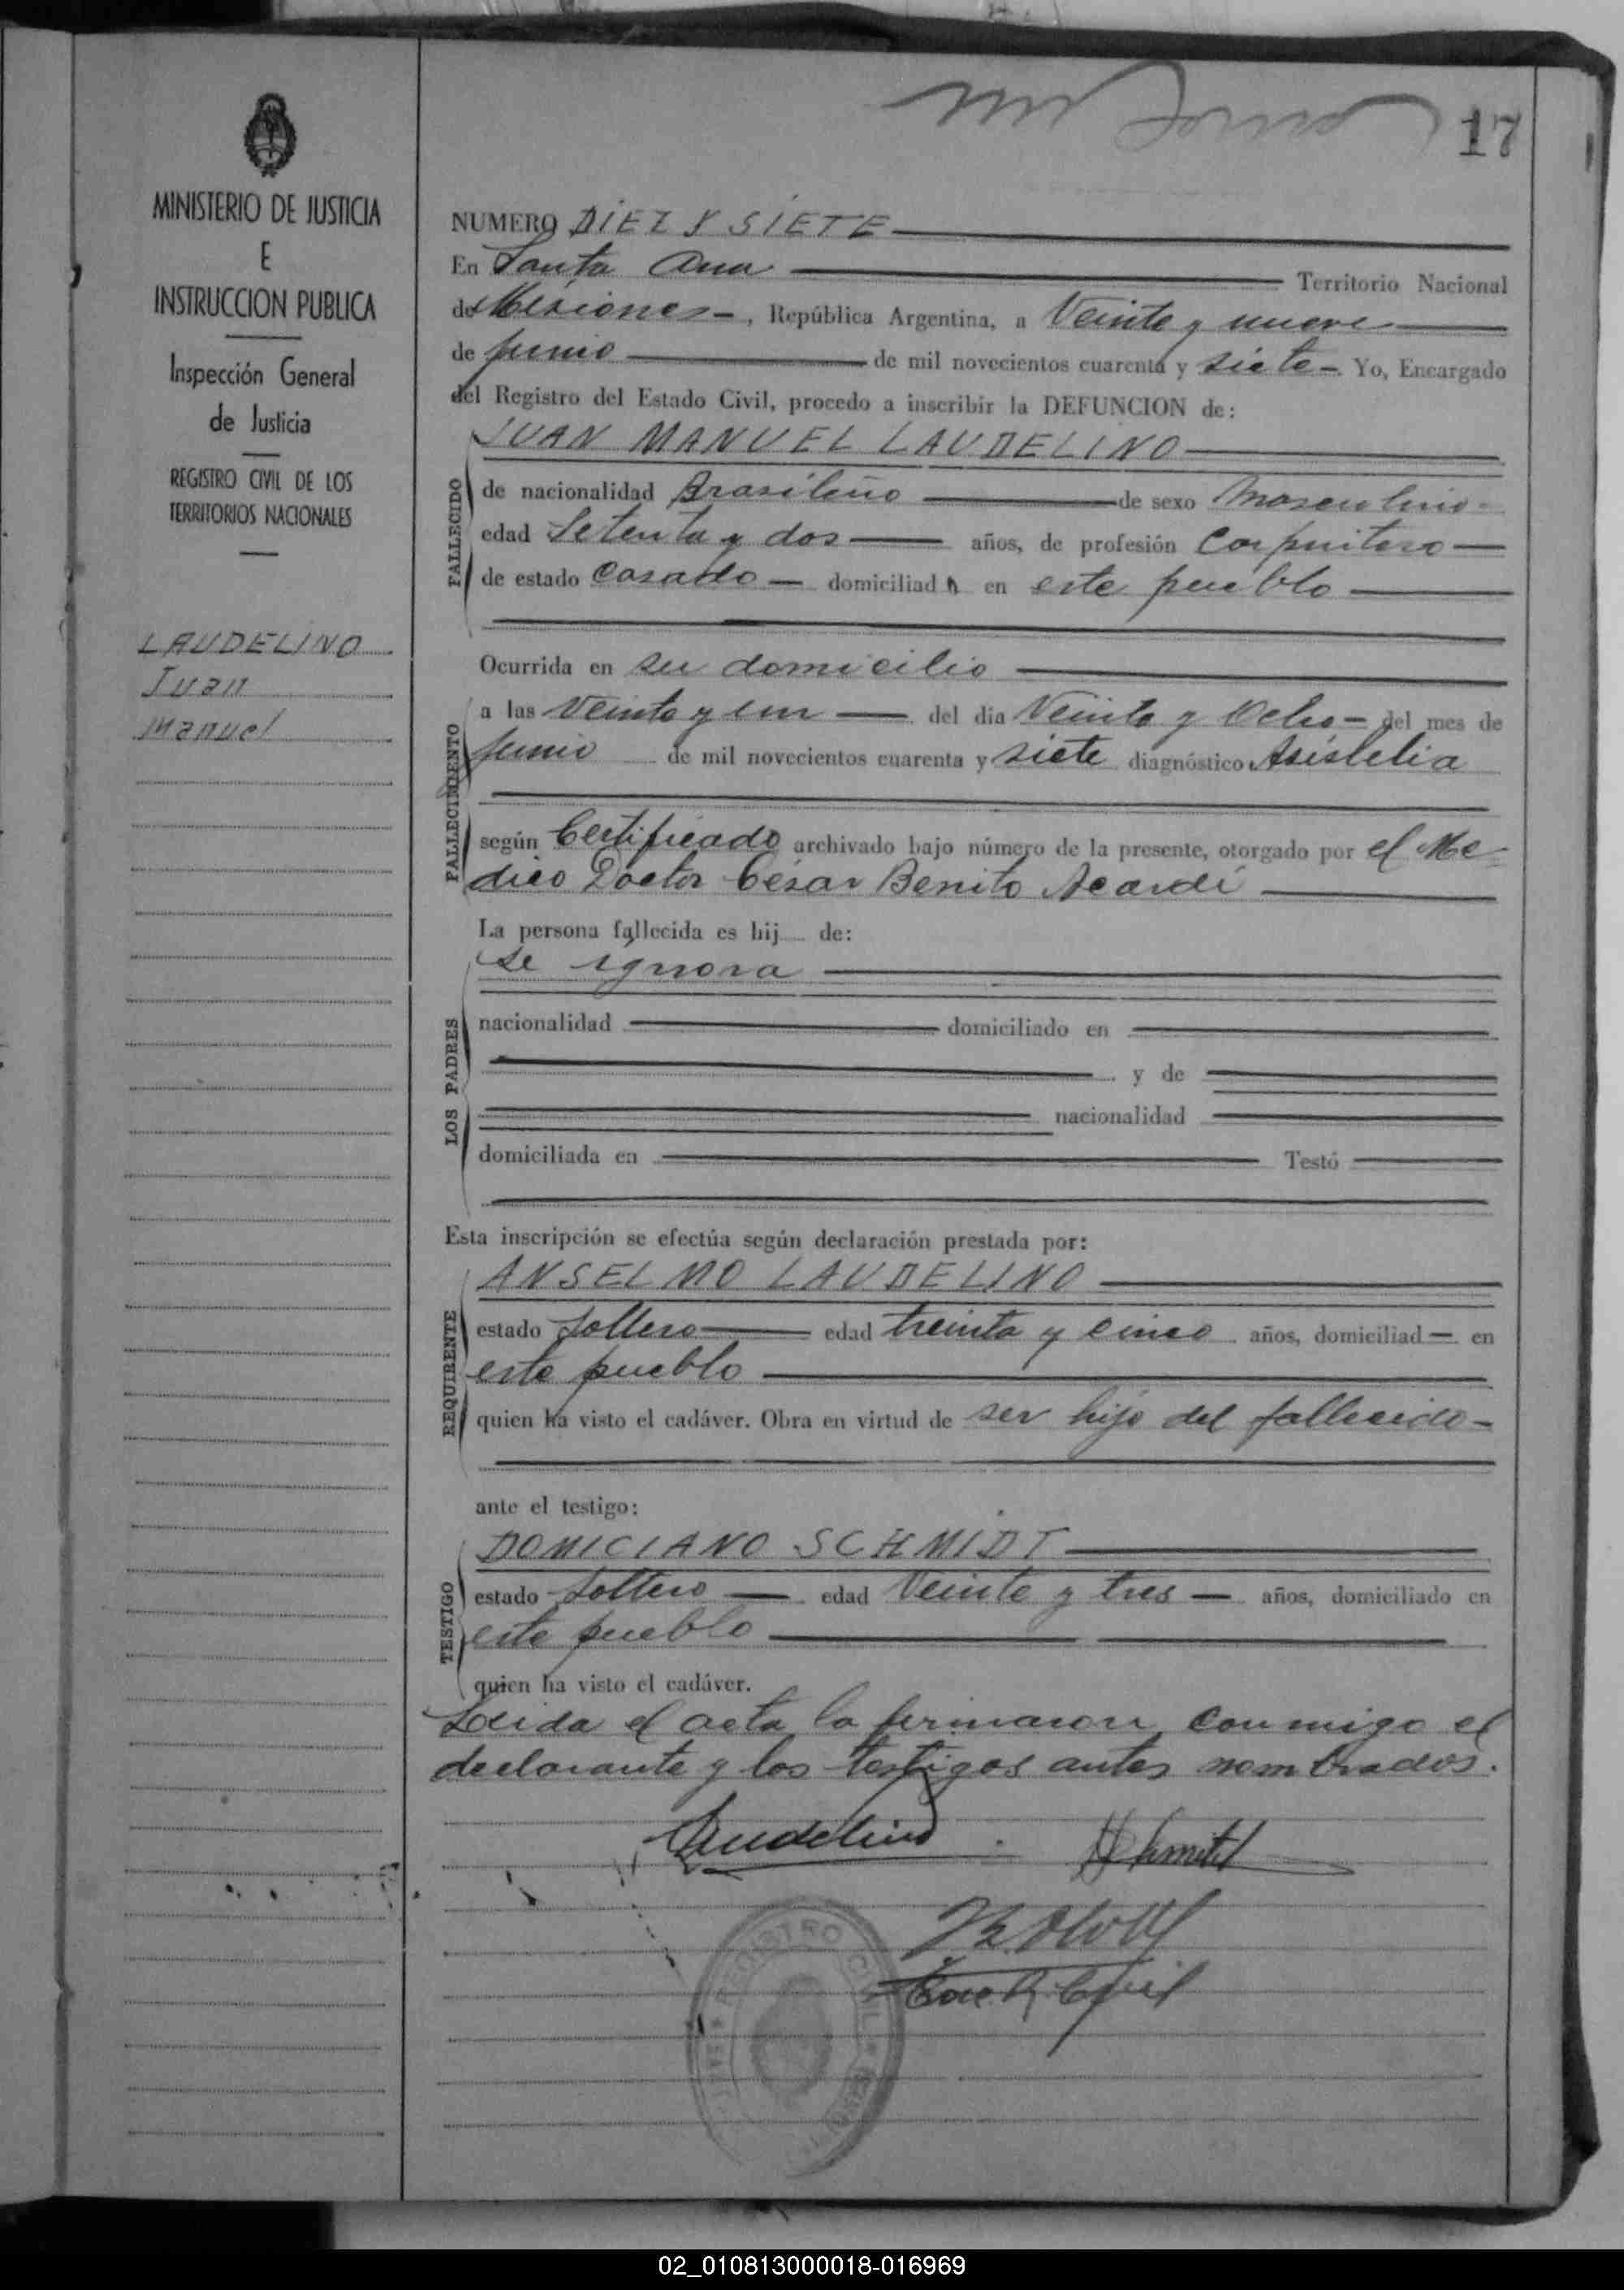 17
MINISTERIO DE JUSTICIA
E
INSTRUCCION PUBLICA
Inspección General
de Justicia
REGISTRO CIVIL DE LOS
TERRITORIOS NACIONALES
LAUDELINO
Juan
Manuel
NUMERO DIEZ Y SIETE
En Santa Ana Territorio Nacional
de Misiones -, República Argentina, a Veinte y nueve
de junio de mil novecientos cuarenta y siete - Yo, Encargado
del Registro del Estado Civil, procedo a inscribir la DEFUNCION de:
JUAN MANUEL LAUDELINO
FALLECIDO
de nacionalidad Brasileño de sexo Masculino -
edad Setenta y dos años, de profesión Carpintero
de estado Casado - domiciliado en este pueblo
Ocurrida en su domicilio
FALLECIMIENTO
a las veinte y un del dia Veinte y Ocho - del mes de
junio de mil novecientos cuarenta y siete diagnóstico Asistelia
según Certificado archivado bajo número de la presente, otorgado por el Me-
dico Doctor César Benito Acardi
La persona fallecida es hij de:
LOS PADRES
se ignora
nacionalidad domiciliado en
y de
nacionalidad
domiciliada en Testó
Esta inscripción se efectúa según declaración prestada por:
REQUIRENTE
ANSELMO LAUDELINO
estado soltero edad treinta y cinco años, domiciliad - en
este pueblo
quien ha visto el cadáver. Obra en virtud de ser hijo del fallecido -
ante el testigo:
TESTIGO
DOMICIANO SCHMIDT
estado soltero edad Veinte y tres - años, domiciliado en
este pueblo
quien ha visto el cadáver.
Leida el acta la firmaron conmigo el
declarante y los testigos antes nombrados.
Laudelino
Enc. R. Civil
REGISTRO CIVIL
02_010813000018-016969